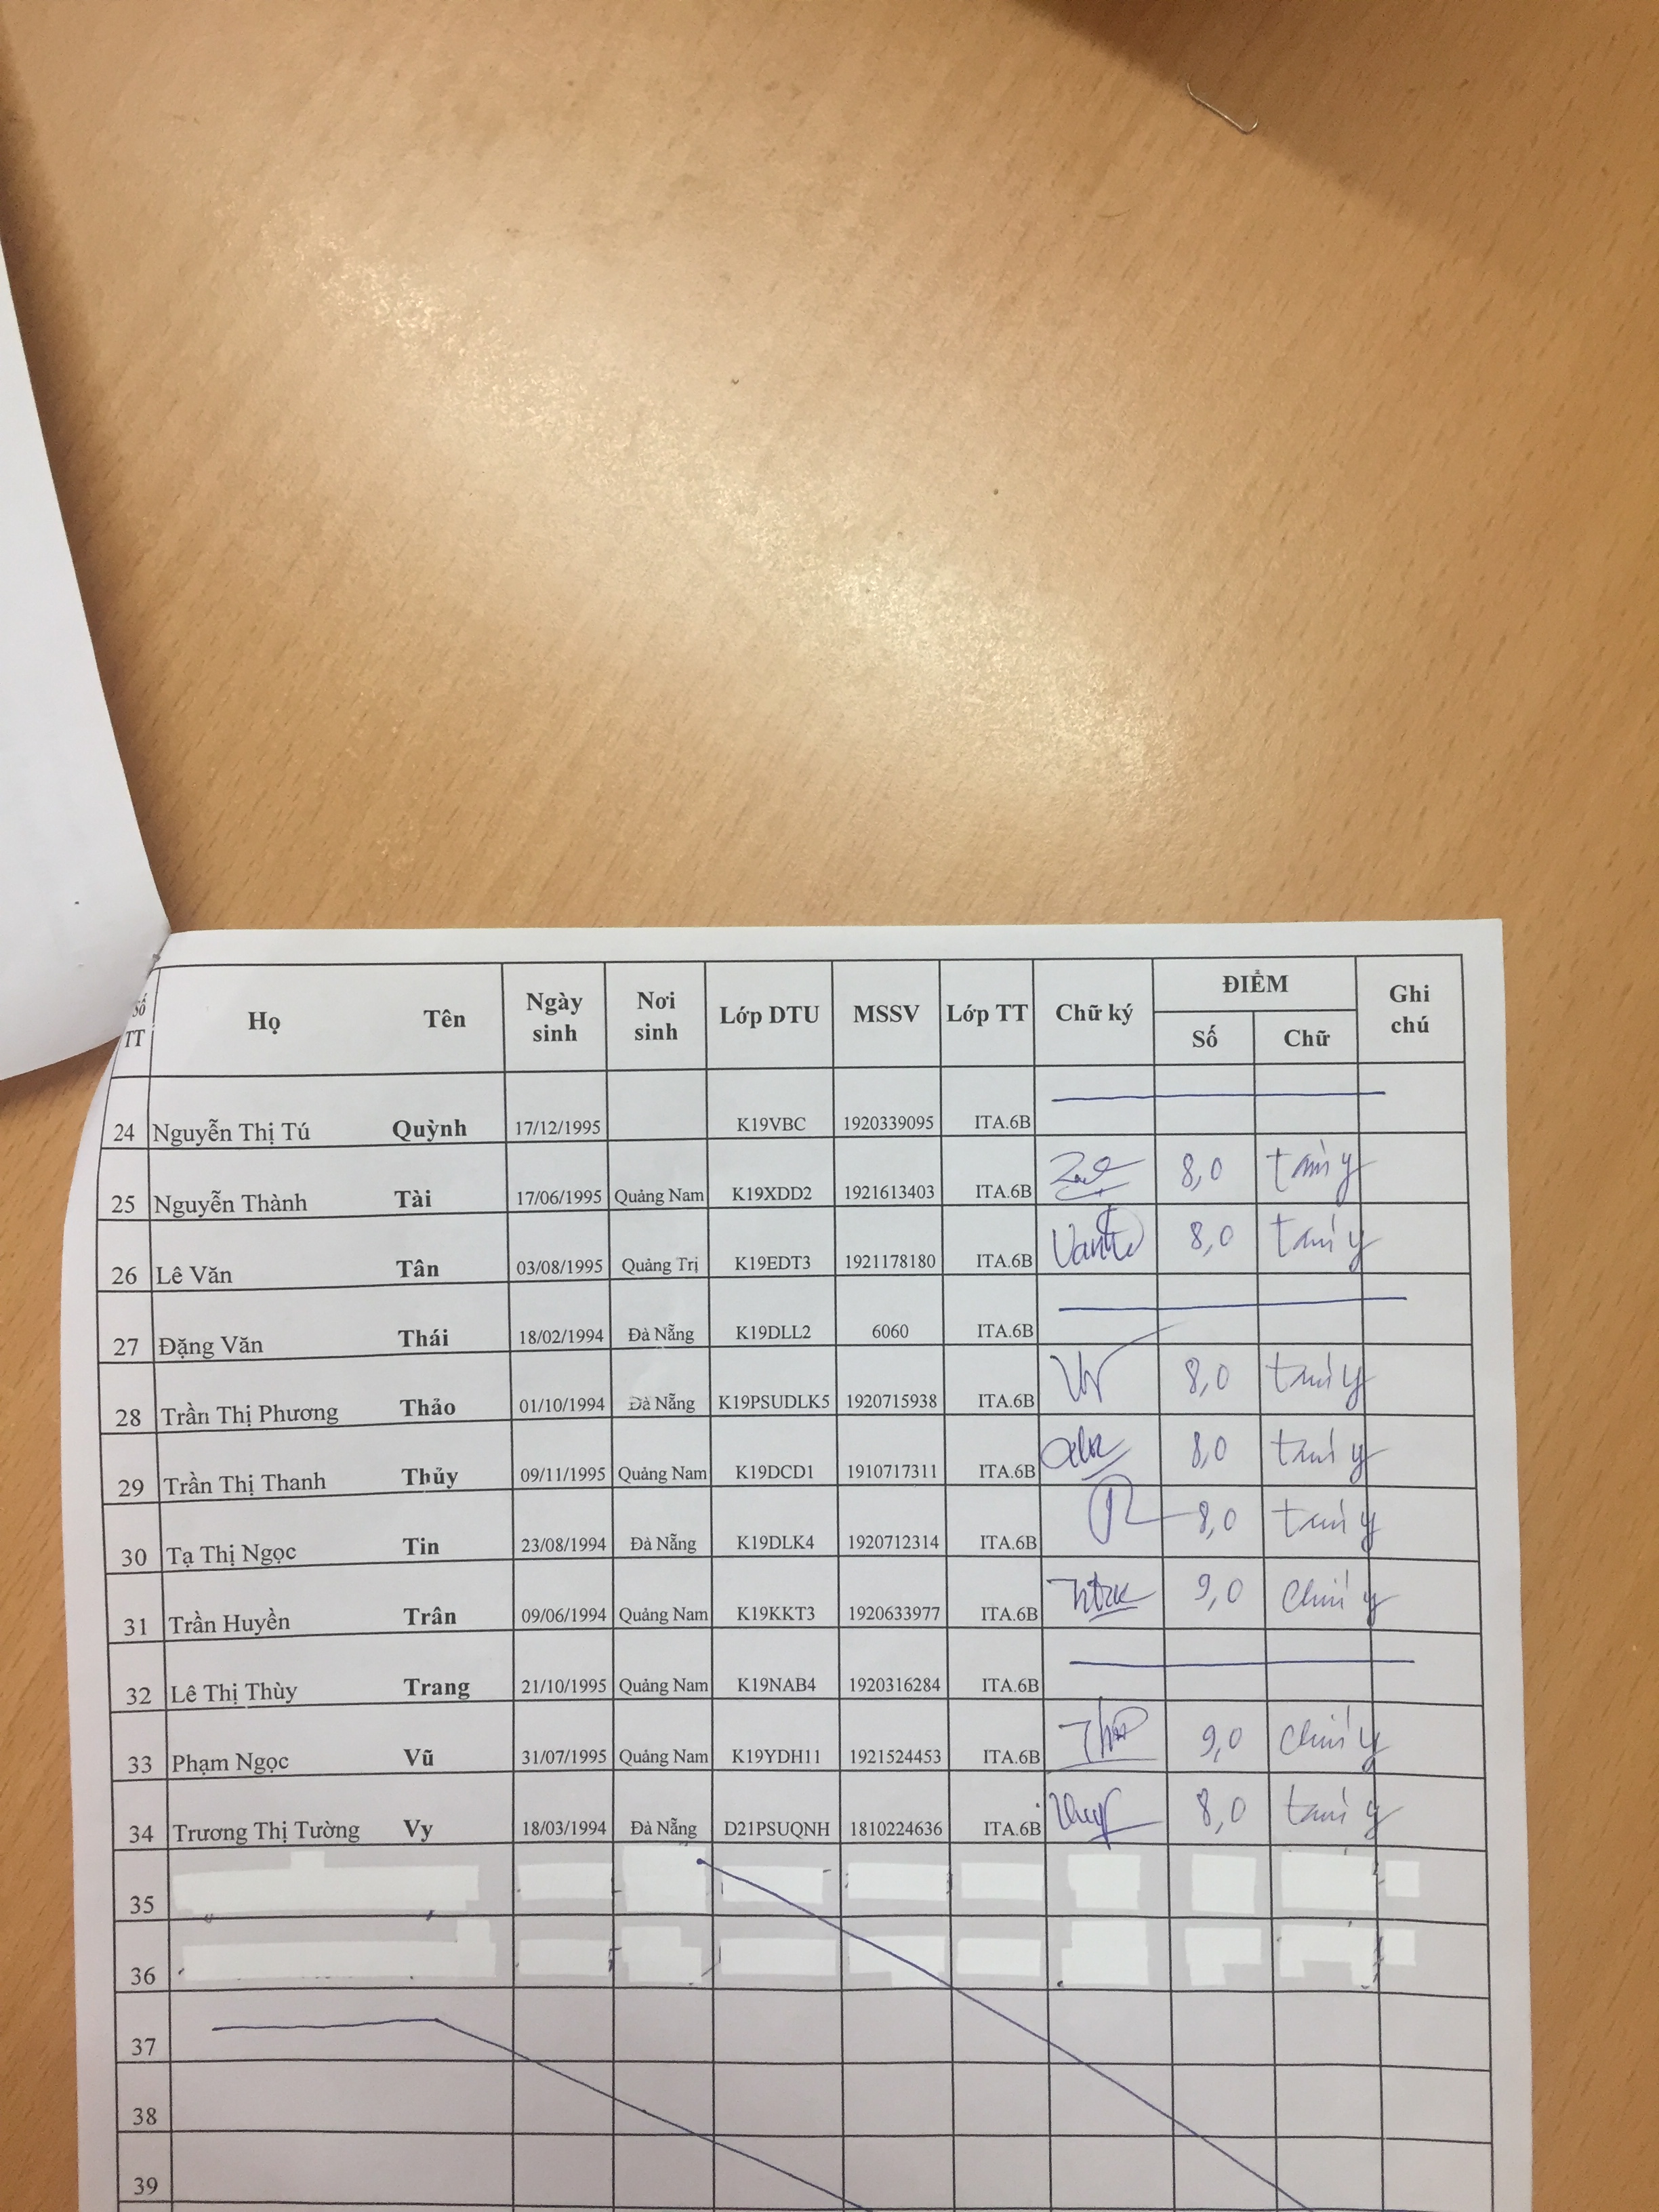 Số TT Họ Tên Ngày sinh Nơi sinh Lớp DTU MSSV Lớp TT Chữ ký ĐIỂM Ghi chú
Số Chữ
24 Nguyễn Thị Tú Quỳnh 17/12/1995 K19VBC 1920339095 ITA.6B
25 Nguyễn Thành Tài 17/06/1995 Quảng Nam K19XDD2 1921613403 ITA.6B 8,0 tám y
26 Lê Văn Tân 03/08/1995 Quảng Trị K19EDT3 1921178180 ITA.6B 8,0 tám y
27 Đặng Văn Thái 18/02/1994 Đà Nẵng K19DLL2 6060 ITA.6B
28 Trần Thị Phương Thảo 01/10/1994 Đà Nẵng K19PSUDLK5 1920715938 ITA.6B 8,0 tám y
29 Trần Thị Thanh Thủy 09/11/1995 Quảng Nam K19DCD1 1910717311 ITA.6B 8,0 tám y
30 Tạ Thị Ngọc Tin 23/08/1994 Đà Nẵng K19DLK4 1920712314 ITA.6B 8,0 tám y
31 Trần Huyền Trân 09/06/1994 Quảng Nam K19KKT3 1920633977 ITA.6B 9,0 chín y
32 Lê Thị Thùy Trang 21/10/1995 Quảng Nam K19NAB4 1920316284 ITA.6B
33 Phạm Ngọc Vũ 31/07/1995 Quảng Nam K19YDH11 1921524453 ITA.6B 9,0 chín y
34 Trương Thị Tường Vy 18/03/1994 Đà Nẵng D21PSUQNH 1810224636 ITA.6B 8,0 tám y
35
36
37
38
39